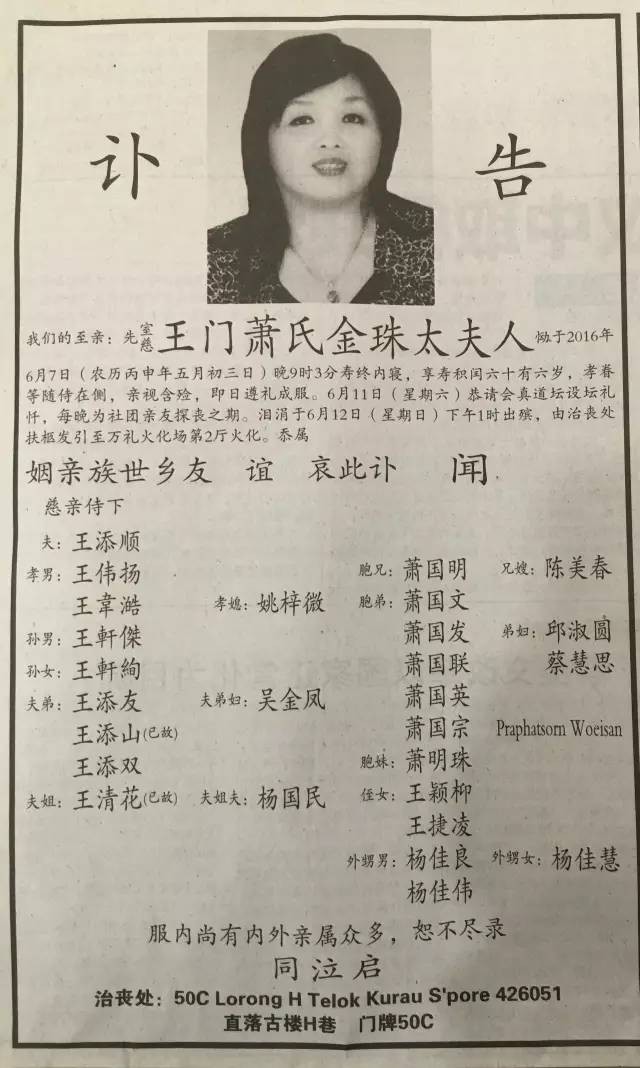 讣告
我们的至亲：先室慈王门萧氏金珠太夫人恸于2016年
6月7日（农历丙申年五月初三日）晚9时3分寿终内寝，享寿积闰六十有六岁，孝眷
等随侍在侧，亲视含殓，即日遵礼成服。6月11日（星期六）恭请会真道坛设坛礼
忏，每晚为社团亲友探丧之期。泪涓于6月12日（星期日）下午1时出殡，由治丧处
扶柩发引至万礼火化场第2厅火化。忝属
姻亲族世乡友 谊 哀此讣 闻
慈亲侍下
夫：王添顺
孝男：王伟扬 胞兄：萧国明 兄嫂：陈美春
王韋澔 孝媳：姚梓微 胞弟：萧国文
孙男：王軒傑 萧国发 弟妇：邱淑圆
孙女：王軒絢 萧国联 蔡慧思
夫弟：王添友 夫弟妇：吴金凤 萧国英
王添山(已故) 萧国宗 Praphatsorn Woeisan
王添双 胞妹：萧明珠
夫姐：王清花(已故) 夫姐夫：杨国民 侄女：王颖柳
王捷凌
外甥男：杨佳良 外甥女：杨佳慧
杨佳伟
服内尚有内外亲属众多，恕不尽录
同泣启
治丧处：50C Lorong H Telok Kurau S'pore 426051
直落古楼H巷 门牌50C